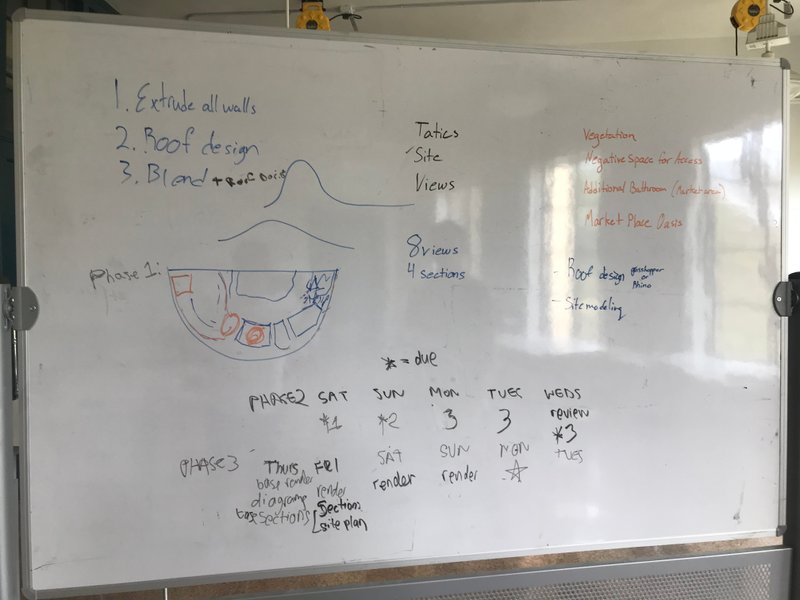 1. Extrude all walls
2. Roof design
3. Blend + Roof
Tatics
Site
Views
8 views
4 sections
Vegetation
Negative Space for Access
Additional Bathroom (Market area)
Market Place Oasis
- Roof design grasshopper or Rhino
- Site modeling
Phase 1:
* = due
PHASE 2 SAT SUN MON TUES WEDS
*1 *2 3 3 review
*3
PHASE 3 Thurs FRI SAT SUN MON TUES
base render render render render
diagrams section
base sections site plan